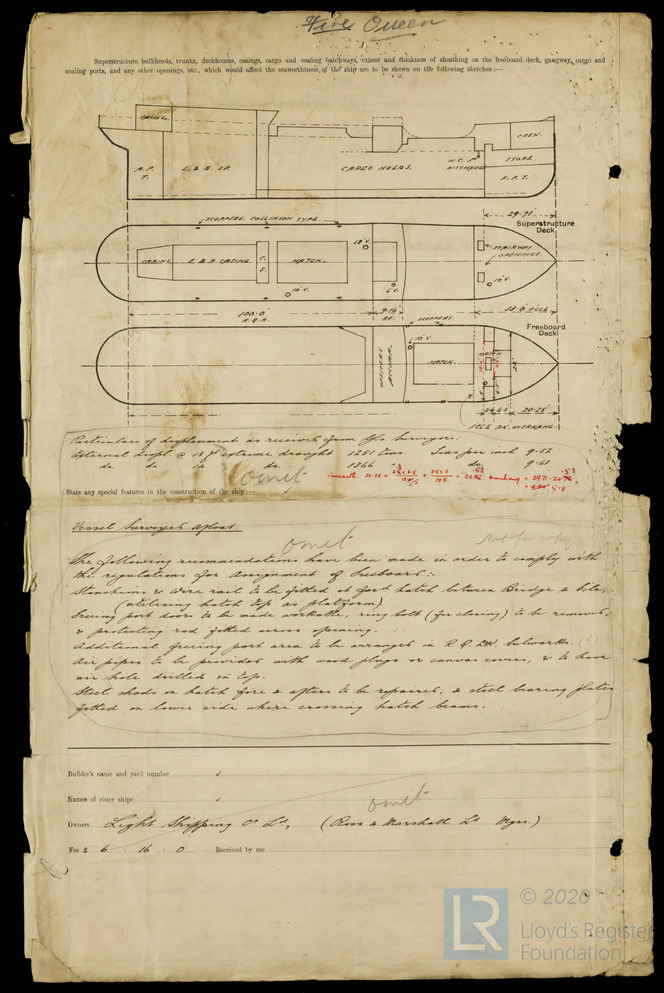 Five Queen
Superstructure bulkheads, trunks, deckhouses, casings, cargo and coaling hatchways, extent and thickness of sheathing on the freeboard deck, gangway, cargo and
coaling ports, and any other openings, etc., which would affect the seaworthiness of the ship are to be shewn on the following sketches:—
CABINS.
CREW.
STORE
A.P.
T.
E. & B. SP.
CARGO HOLDS.
W.C. P
DISCHARGE
F.P.T.
29·71'
SCUPPERS. COLLINSON TYPE.
Superstructure
Deck
CABINS
E. & B CASING.
C.
S.
HATCH.
18"V.
STAIRWAY
OPENINGS.
10"V.
10"V.
100·0'
R.Q.D.
9·16
SCUPPERS.
Freeboard
Deck
OFFICERS
ACCOM.
10"V.
HATCH.
HATCH
24·63
20·28
FCLE DK. OVERHANG
Particulars of displacement as received from Gls Surveyors:
External displ. @ 13 ft extreme draught 1251 tons. Tons per inch 9·52
do do 14 do. 1366 do. 9·61
omit
State any special features in the construction of the ship:—
Vessel Surveyed afloat.
omit
Not for copy
The following recommendations have been made in order to comply with
the regulations for assignment of freeboard:-
Stanchions & wire rail to be fitted at ford hatch between Bridge & fcle,
(utilising hatch top as platform)
Freeing port doors to be made workable, ring bolt (for closing) to be removed,
& protecting rod fitted across opening.
Additional freeing port area to be arranged in R.Q. DK. bulwarks.
Air pipes to be provided with wood plugs or canvas covers, & to have
air hole drilled in top.
Steel shoes on hatch fore & afters to be repaired, & steel bearing plates
fitted on lower side where crossing hatch beams.
Builder's name and yard number
Names of sister ships
omit
Owners Light Shipping Co Ld., (Ross & Marshall Ld Mgrs.)
Fee £ 6 : 16 : 0 Received by me
LR
© 2020
Lloyd's Register
Foundation